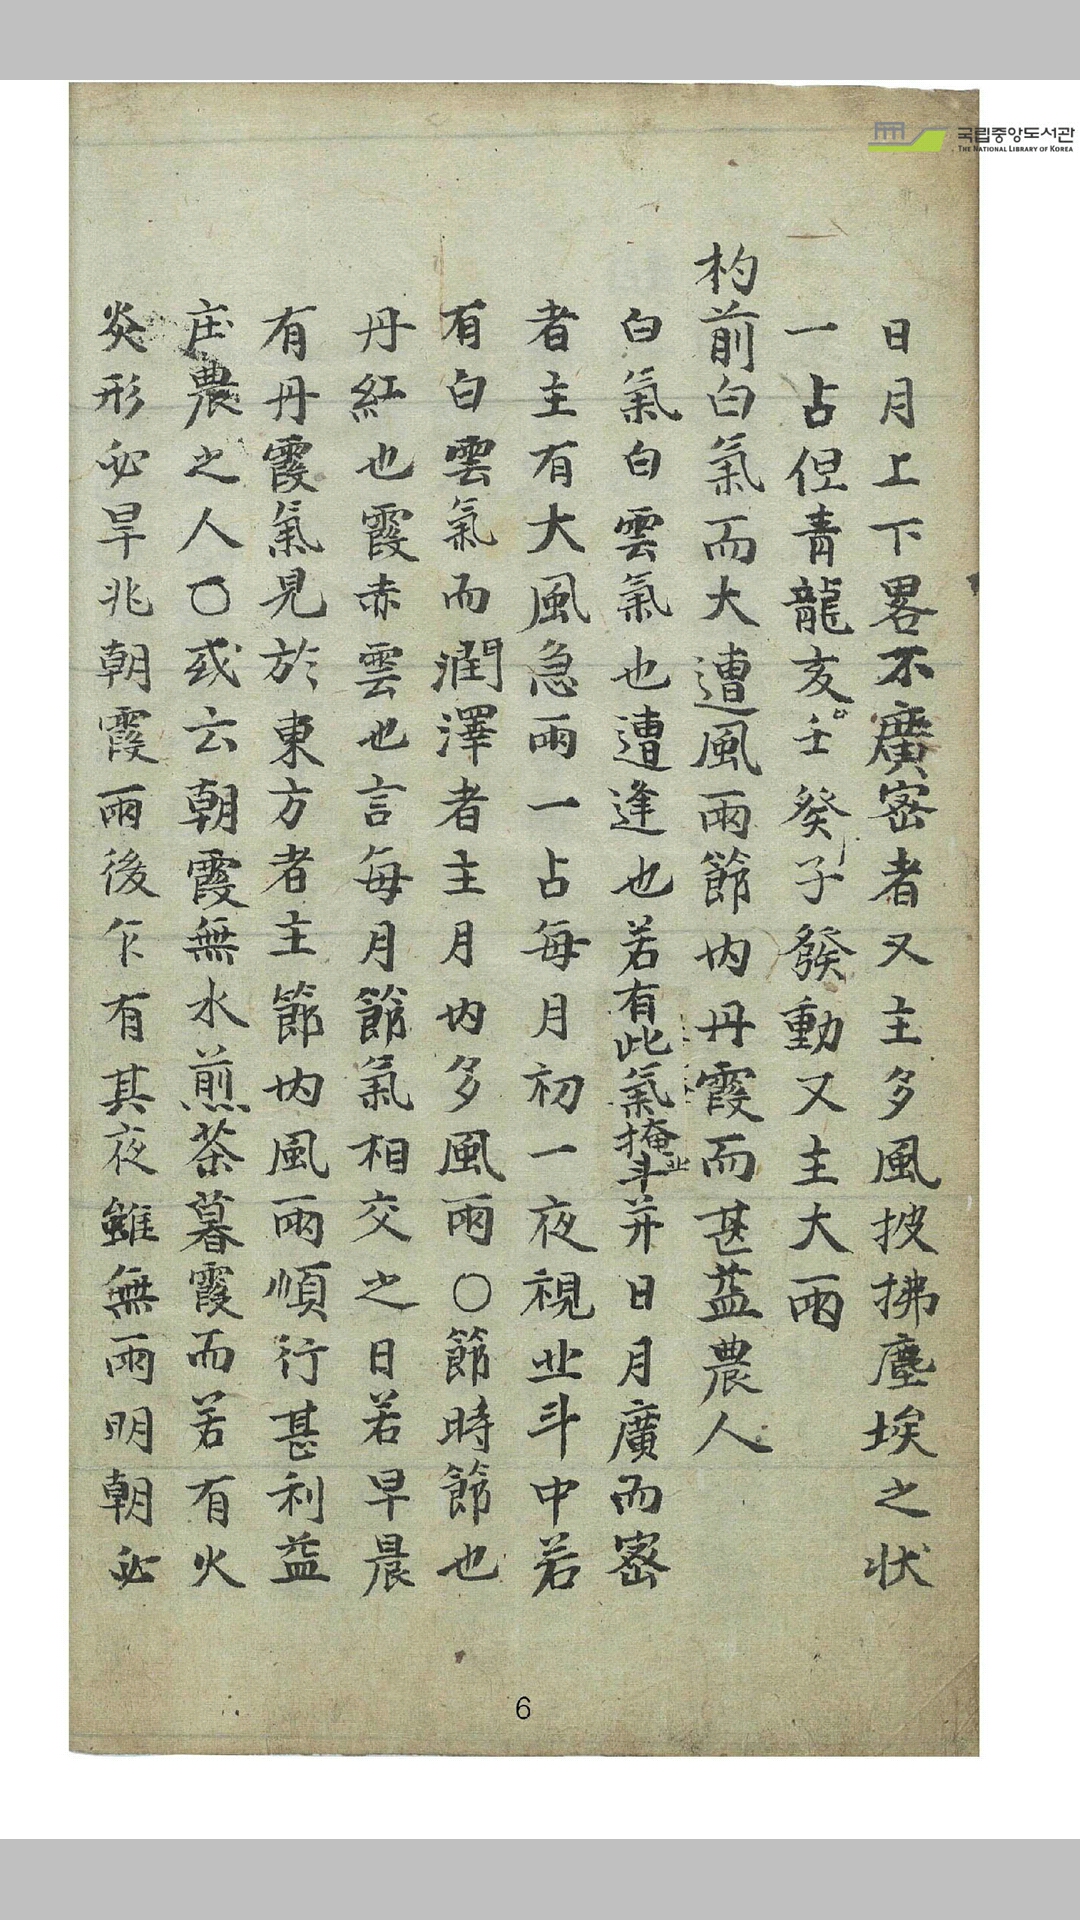 日月上下畧不廣密者又主多風披拂塵埃之状
一占但青龍亥壬癸子發動又主大雨
杓前白氣而大遭風雨節内丹霞而甚益農人
白氣白雲氣也遭逢也若有此氣掩北斗并日月廣而密
者主有大風急雨一占每月初一夜視北斗中若
有白雲氣而潤澤者主月内多風雨○節時節也
丹紅也霞赤雲也言每月節氣相交之日若早晨
有丹霞氣見於東方者主節内風雨順行甚利益
庄農之人○或云朝霞無水煎茶暮霞而若有火
炎形必旱兆朝霞雨後乍有其夜雖無雨明朝必
6
국립중앙도서관
THE NATIONAL LIBRARY OF KOREA